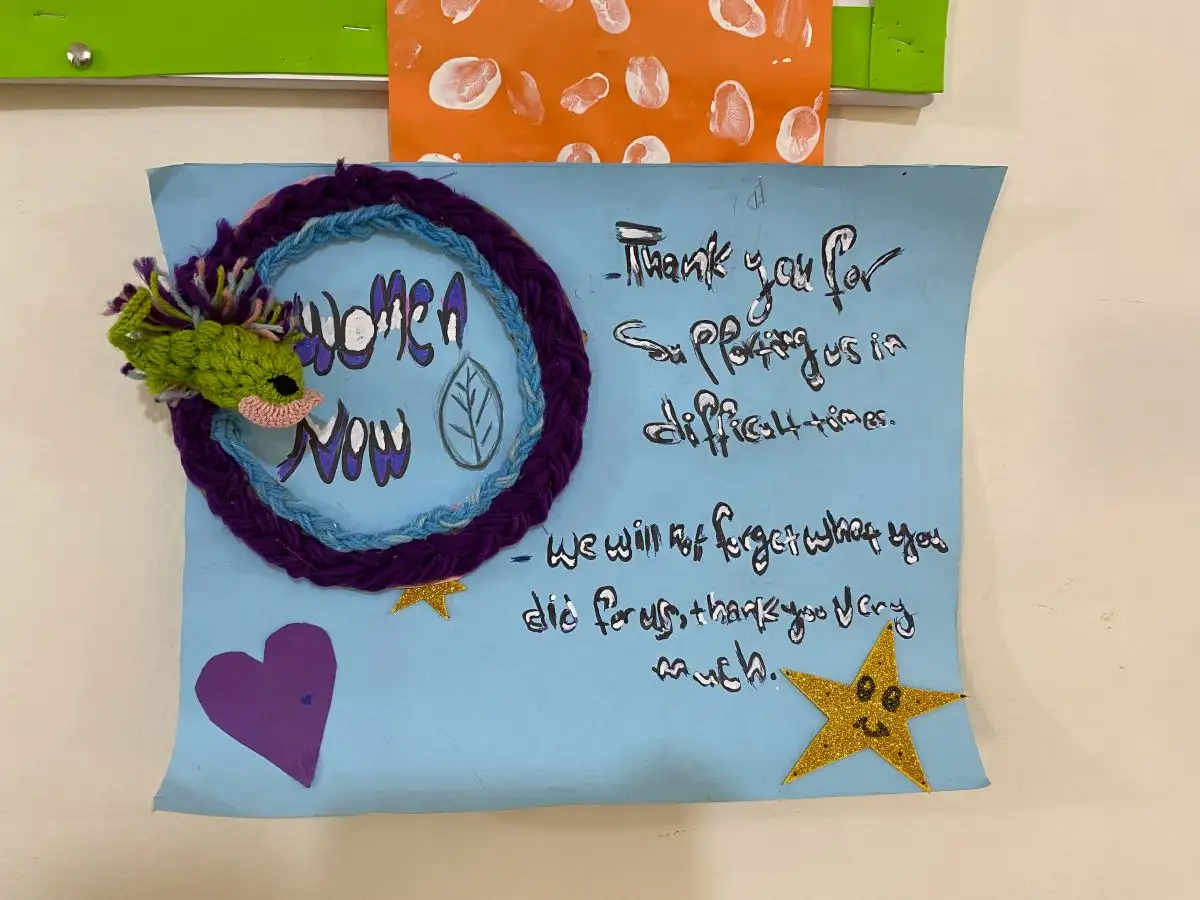 Women
Now
- Thank you for
Supporting us in
difficult times.
- We will not forget what you
did for us, thank you very
much.